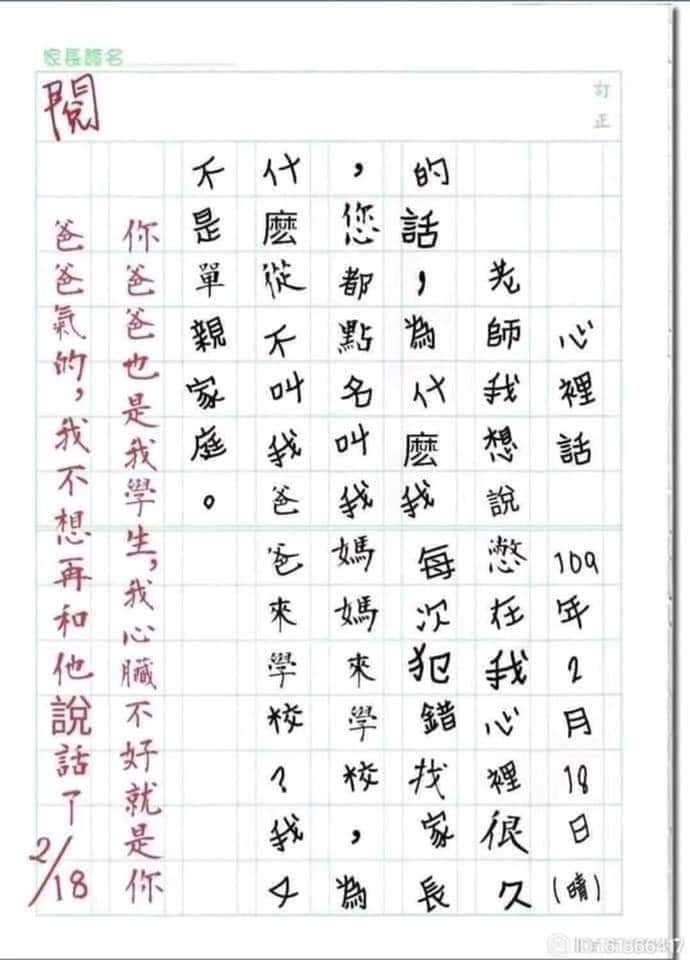 家長簽名
訂正
心裡話 109年2月18日(晴)
老師我想說憋在我心裡很久
的話，為什麼我每次犯錯找家長
，您都點名叫我媽媽來學校，為
什麼從不叫我爸爸來學校？我又
不是單親家庭。
你爸爸也是我學生，我心臟不好就是你
爸爸氣的，我不想再和他說話了
2/18
閱